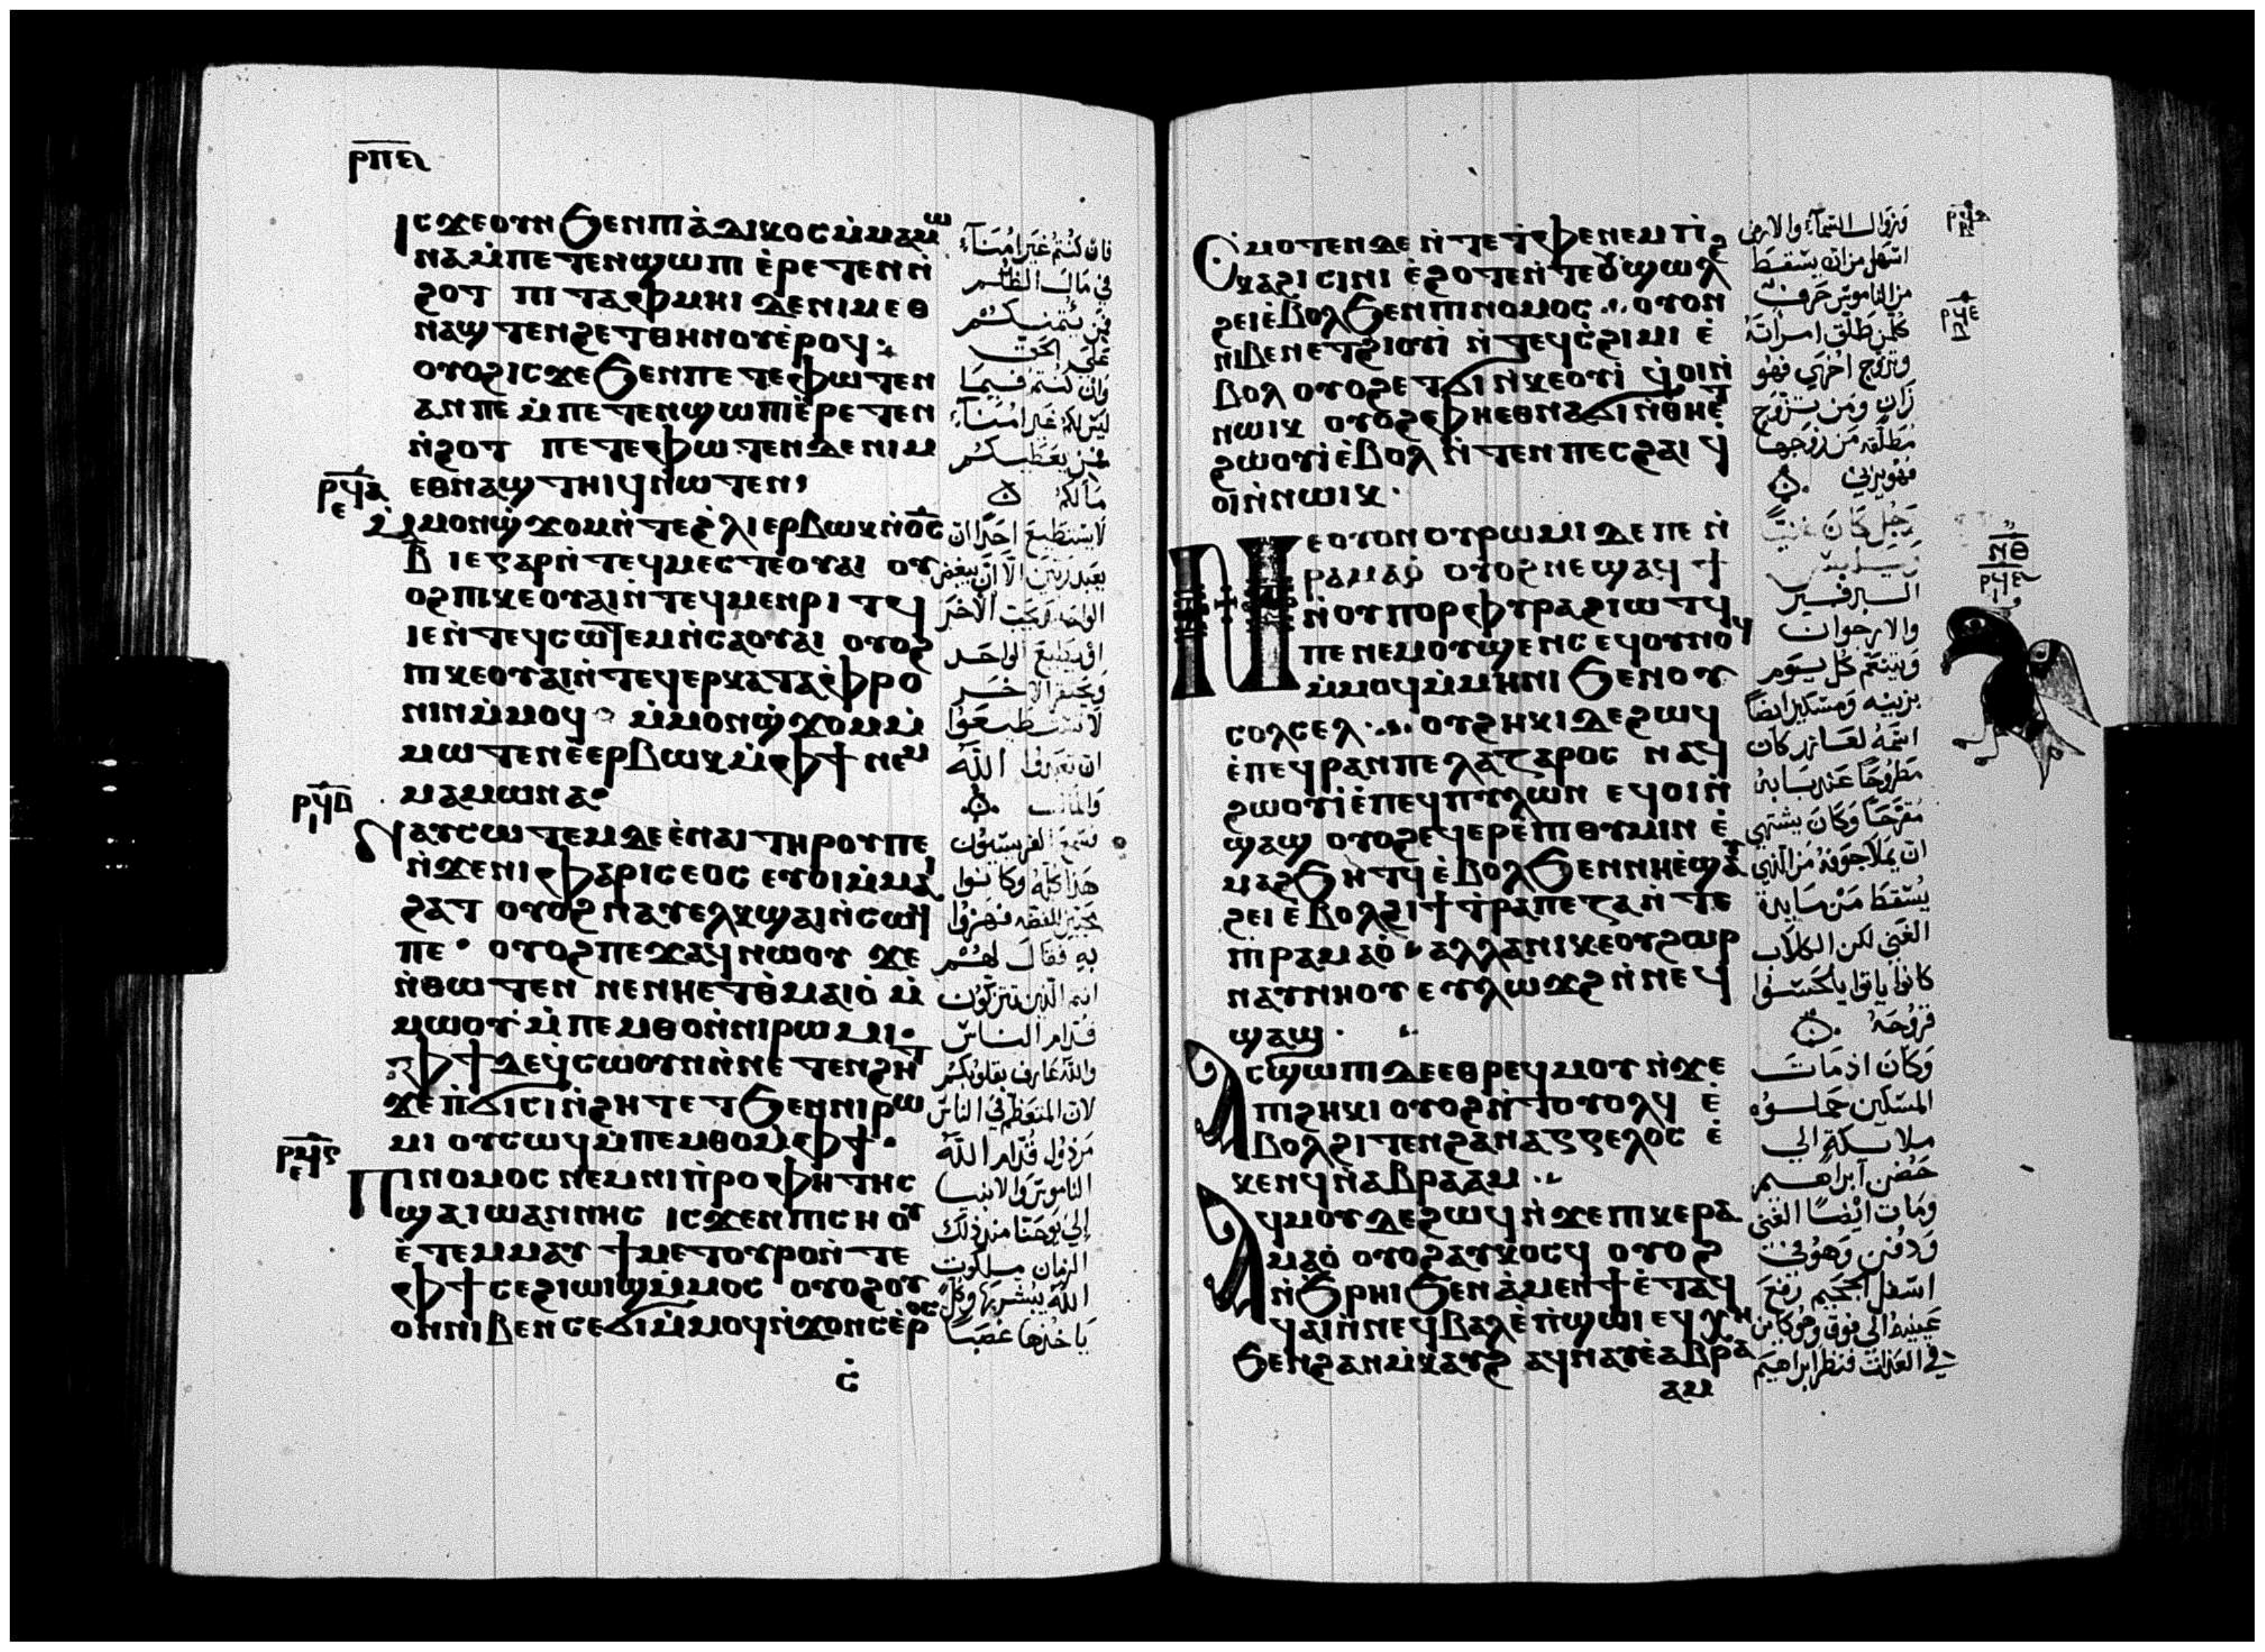 ⲣⲡⲉ
ⲓⲥϫⲉⲟⲩⲛ ϧⲉⲛⲡⲓⲁ̀ⲇⲓⲕⲟⲥ ⲙ̀ⲙⲁⲙⲱ
ⲛⲁ ⲙ̀ⲡⲉⲧⲉⲛϣⲱⲡⲓ ⲉ̀ⲣⲉⲧⲉⲛⲛ̀
ϩⲟⲧ ⲡⲓⲧⲁⲫⲙⲏⲓ ⲇⲉ ⲛⲓⲙ ⲉⲑ
ⲛⲁϣⲧⲉⲛϩⲉⲧⲑⲏⲛⲟⲩ ⲉ̀ⲣⲟϥ
ⲟⲩⲟϩ ⲓⲥϫⲉ ϧⲉⲛⲡⲉⲧⲉⲫⲱⲧⲉⲛ
ⲁⲛⲡⲉ ⲙ̀ⲡⲉⲧⲉⲛϣⲱⲡⲓ ⲉ̀ⲣⲉⲧⲉⲛ
ⲛ̀ϩⲟⲧ ⲡⲉⲧⲉⲫⲱⲧⲉⲛ ⲇⲉ ⲛⲓⲙ
ⲉⲑⲛⲁϣⲧⲏⲓϥ ⲛⲱⲧⲉⲛ
ⲙ̀ⲙⲟⲛϣ̀ϫⲟⲙ ⲛ̀ⲧⲉϩ̀ⲗⲓ ⲉⲣⲃⲱⲕ ⲛ̀ⲟ̅ⲥ̅
ⲃ ⲓⲉ ⲅⲁⲣ ⲛ̀ⲧⲉϥⲙⲉⲥⲧⲉ ⲟⲩⲁⲓ ⲟⲩ
ⲟϩ ⲡⲓⲕⲉⲟⲩⲁⲓ ⲛ̀ⲧⲉϥⲙⲉⲛⲣⲓⲧϥ
ⲓⲉ ⲛ̀ⲧⲉϥⲥⲱⲧⲉⲙ ⲛ̀ⲥⲁⲟⲩⲁⲓ ⲟⲩⲟϩ
ⲡⲓⲕⲉⲟⲩⲁⲓ ⲛ̀ⲧⲉϥⲉⲣⲕⲁⲧⲁⲫⲣⲟ
ⲛⲓⲛ ⲙ̀ⲙⲟϥ ⲙ̀ⲙⲟⲛϣ̀ϫⲟⲙ ⲙ̀
ⲙⲱⲧⲉⲛ ⲉ̀ⲉⲣⲃⲱⲕ ⲙ̀ⲫϯ ⲛⲉⲙ
ⲙⲁⲙⲱⲛⲁ
ⲛⲁⲩⲥⲱⲧⲉⲙ ⲇⲉ ⲉ̀ⲛⲁⲓ ⲧⲏⲣⲟⲩ ⲡⲉ
ⲛ̀ϫⲉⲛⲓⲫⲁⲣⲓⲥⲉⲟⲥ ⲉⲩⲟⲓ ⲙ̀ⲙⲁⲓ
ϩⲁⲧ ⲟⲩⲟϩ ⲛⲁⲩⲉⲗⲕϣⲁⲓ ⲛ̀ⲥⲱϥ
ⲡⲉ ⲟⲩⲟϩ ⲡⲉϫⲁϥ ⲛⲱⲟⲩ ϫⲉ
ⲛ̀ⲑⲱⲧⲉⲛ ⲛⲉⲛⲏⲉⲧⲑ̀ⲙⲁⲓⲟ̀ ⲙ̀
ⲙⲱⲟⲩ ⲙ̀ⲡⲉⲙⲑⲟ ⲛ̀ⲛⲓⲣⲱⲙⲓ
ⲫϯ ⲇⲉ ϥ̀ⲥⲱⲟⲩⲛ ⲛ̀ⲛⲉⲧⲉⲛϩⲏⲧ
ϫⲉ ⲡ̀ϭⲓⲥⲓ ⲛ̀ϩⲏⲧ ⲉⲧϧⲉⲛⲛⲓⲣⲱ
ⲙⲓ ⲟⲩⲥⲱϥ ⲙ̀ⲡⲉⲙⲑⲟ ⲙ̀ⲫϯ
ⲡⲓⲛⲟⲙⲟⲥ ⲛⲉⲙ ⲛⲓⲡ̀ⲣⲟⲫⲏⲧⲏⲥ
ϣⲁ ⲓⲱⲁⲛⲛⲏⲥ ⲓⲥϫⲉⲛ ⲡⲓⲥⲏⲟⲩ
ⲉ̀ⲧⲉⲙⲙⲁⲩ ϯⲙⲉⲧⲟⲩⲣⲟ ⲛ̀ⲧⲉ
ⲫϯ ⲥⲉϩⲓⲱⲓϣ ⲙ̀ⲙⲟⲥ ⲟⲩⲟϩ ⲟⲩ
ⲟⲛ ⲛⲓⲃⲉⲛ ⲥⲉϭⲓ ⲙ̀ⲙⲟⲥ ⲛ̀ϫⲟⲛⲥ ⲉ̀ⲣ
ⲟⲥ
فان كنتم غير امناء
في مال الظلم
فمن يئتمنكم
على الحق
وان كنتم فيما
ليس لكم غير امناء
فمن يعطيكم
مالكم
لا يستطيع احد ان
يعبد ربين الا ان يبغض
الواحد ويحب الاخر
او يطيع الواحد
ويحتقر الاخر
لا تستطيعوا
ان تعبدوا الله
والمال
فسمع الفريسيون
هذا كله وكانوا
محبين للفضه فهزوا
به فقال لهم
انتم الذين تتزكون
قدام الناس
والله عارف بقلوبكم
لان المتعظم في الناس
مرذول قدام الله
الناموس والانبيا
إلى يوحنا منذ ذلك
الزمان ملكوت
الله يبشر بها وكل
ياخذها غصبا
ⲥ̀ⲙⲟⲧⲉⲛ ⲇⲉ ⲛ̀ⲧⲉⲧ̀ⲫⲉ ⲛⲉⲙ ⲡⲓ
ⲕⲁϩⲓ ⲥⲓⲛⲓ ⲉ̀ϩⲟⲧⲉ ⲛ̀ⲧⲉⲟⲩϣⲱⲗϩ
ϩⲉⲓ ⲉ̀ⲃⲟⲗϧⲉⲛⲡⲓⲛⲟⲙⲟⲥ ⲟⲩⲟⲛ
ⲛⲓⲃⲉⲛ ⲉⲧϩⲓⲟⲩⲓ̀ ⲛ̀ⲧⲉϥⲥ̀ϩⲓⲙⲓ ⲉ̀
ⲃⲟⲗ ⲟⲩⲟϩ ⲉⲧϭⲓ ⲛ̀ⲕⲉⲟⲩⲓ̀ ϥ̀ⲟⲓ ⲛ̀
ⲛⲱⲓⲕ ⲟⲩⲟϩ ⲫⲏⲉⲑⲛⲁϭⲓ ⲛ̀ⲑⲏⲉⲧ
ϩⲱⲟⲩⲓ̀ ⲉ̀ⲃⲟⲗ ⲛ̀ⲧⲉⲛ ⲡⲉⲥϩⲁⲓ ϥ̀
ⲟⲓ ⲛ̀ⲛⲱⲓⲕ
ⲛⲉ ⲟⲩⲟⲛ ⲟⲩⲣⲱⲙⲓ ⲇⲉ ⲡⲉ ⲛ̀
ⲣⲁⲙⲁⲟ̀ ⲟⲩⲟϩ ⲛⲉϣⲁϥϯ
ⲛ̀ⲟⲩⲡⲟⲣⲫⲩⲣⲁ ϩⲓⲱⲧϥ
ⲡⲉ ⲛⲉⲙ ⲟⲩϣⲉⲛⲥ ⲉϥⲟⲩⲛⲟϥ
ⲙ̀ⲙⲟϥ ⲙ̀ⲙⲏⲛⲓ ϧⲉⲛⲟⲩ
ⲥⲟⲗⲥⲉⲗ ⲟⲩϩⲏⲕⲓ ⲇⲉ ϩⲱϥ
ⲉ̀ⲡⲉϥⲣⲁⲛ ⲡⲉ ⲗⲁⲍⲁⲣⲟⲥ ⲛⲁϥ
ϩⲱⲟⲩⲓ̀ ⲉ̀ⲡⲉϥⲡⲩⲗⲱⲛ ⲉϥⲟⲓ ⲛ̀
ϣⲁϣ ⲟⲩⲟϩ ⲉϥⲉⲣⲉ̀ⲡⲓⲑⲩⲙⲓⲛ ⲉ̀
ⲙⲁϩϧⲏⲧϥ ⲉ̀ⲃⲟⲗϧⲉⲛⲛⲏⲉ̀ϣⲁⲩ
ϩⲉⲓ ⲉ̀ⲃⲟⲗϩⲓ ϯⲧ̀ⲣⲁⲡⲉⲍⲁ ⲛ̀ⲧⲉ
ⲡⲓⲣⲁⲙⲁⲟ̀ ⲁⲗⲗⲁ ⲛⲓⲕⲉⲟⲩϩⲱⲣ
ⲛⲁⲩⲛⲏⲟⲩ ⲉⲩⲗⲱϫϩ ⲛ̀ⲛⲉϥ
ϣⲁϣ
ⲁⲥϣⲱⲡⲓ ⲇⲉ ⲉⲑⲣⲉϥⲙⲟⲩ ⲛ̀ϫⲉ
ⲡⲓϩⲏⲕⲓ ⲟⲩⲟϩ ⲛ̀ⲧⲟⲩⲟⲗϥ ⲉ̀
ⲃⲟⲗϩⲓⲧⲉⲛ ϩⲁⲛⲁⲅⲅⲉⲗⲟⲥ ⲉ̀
ⲕⲉⲛϥ ⲛ̀ⲁⲃⲣⲁⲁⲙ
ⲁϥⲙⲟⲩ ⲇⲉ ϩⲱϥ ⲛ̀ϫⲉ ⲡⲓⲕⲉⲣⲁ
ⲙⲁⲟ̀ ⲟⲩⲟϩ ⲁⲩⲕⲟⲥϥ ⲟⲩⲟϩ
ⲛ̀ϧⲣⲏⲓ ϧⲉⲛⲁ̀ⲙⲉⲛϯ ⲉ̀ⲧⲁϥ
ϥⲁⲓ ⲛ̀ⲛⲉϥⲃⲁⲗ ⲉ̀ⲡ̀ϣⲱⲓ ⲉϥⲭⲏ
ϧⲉⲛϩⲁⲛⲙ̀ⲕⲁⲩϩ ⲁϥⲛⲁⲩ ⲉ̀ⲁⲃⲣⲁ
ⲁⲙ
فزوال السماء والارض
اسهل من ان يسقط
من الناموس حرف
كل من طلق امراته
وتزوج اخرى فهو
زان ومن تزوج
مطلقه من زوجها
فهو يزني
رجل كان غنيا
والارجوان
ويتنعم كل يوم
بزينه ومسكين ايضا
اسمه لعازر كان
مطروحا عند بابه
مقرحا وكان يشتهي
ان يملأ جوفه من الذي
يسقط من مايدة
الغني لكن الكلاب
كانوا ياتوا يلحسوا
قروحه
وكان اذ مات
المسكين حملوه
ملايكة إلي
حضن ابراهيم
ومات ايضا الغني
ودفن وهو في
اسفل الجحيم رفع
عينيه الي فوق وهو كاين
في العذاب فنظر ابراهيم
ⲛⲑ